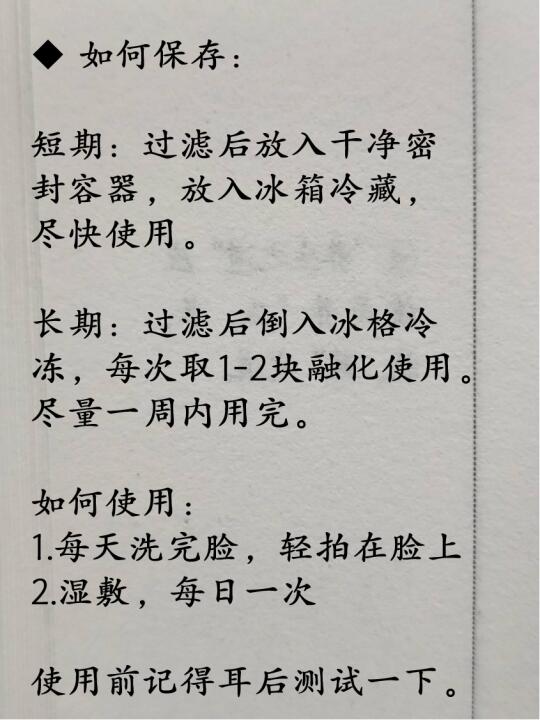 ◆ 如何保存：
短期：过滤后放入干净密
封容器，放入冰箱冷藏，
尽快使用。
长期：过滤后倒入冰格冷
冻，每次取1-2块融化使用。
尽量一周内用完。
如何使用：
1.每天洗完脸，轻拍在脸上
2.湿敷，每日一次
使用前记得耳后测试一下。